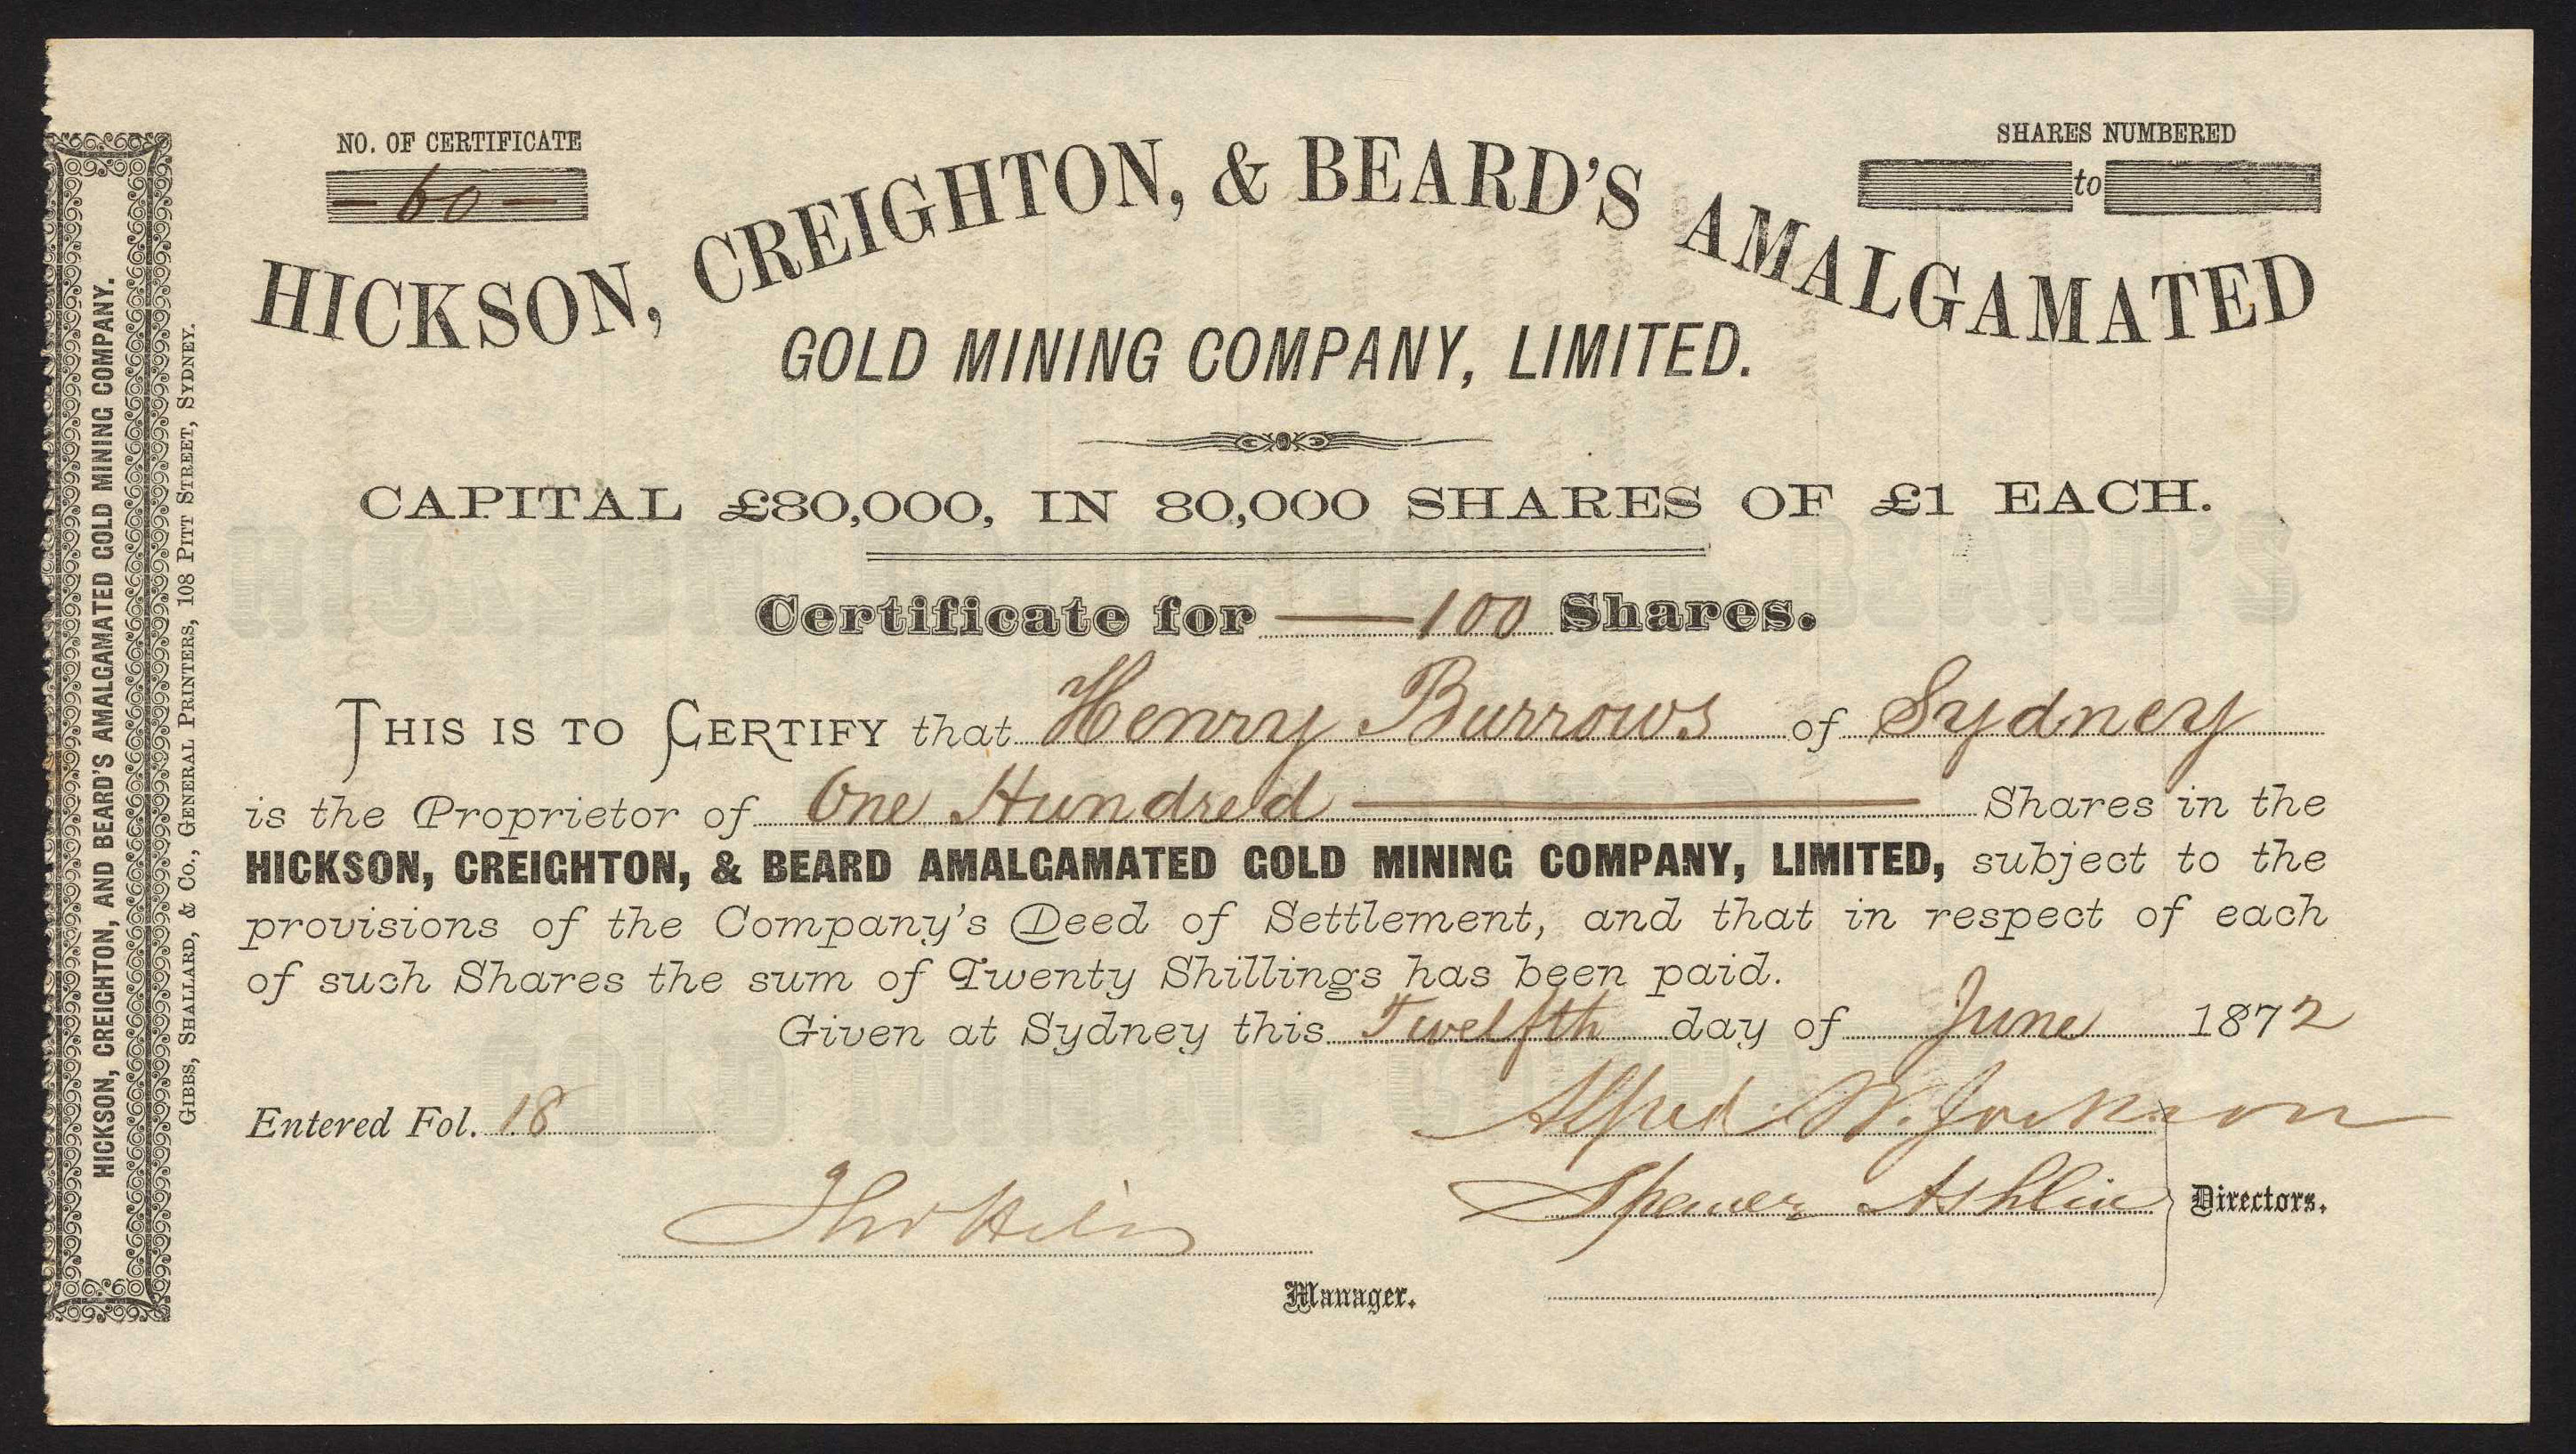 NO. OF CERTIFICATE
60
SHARES NUMBERED
to
HICKSON, CREIGHTON, & BEARD'S AMALGAMATED
GOLD MINING COMPANY, LIMITED.
CAPITAL £80,000, IN 80,000 SHARES OF £1 EACH.
Certificate for 100 Shares.
THIS IS TO CERTIFY that Henry Burrows of Sydney
is the Proprietor of One Hundred Shares in the
HICKSON, CREIGHTON, & BEARD AMALGAMATED GOLD MINING COMPANY, LIMITED, subject to the
provisions of the Company's Deed of Settlement, and that in respect of each
of such Shares the sum of Twenty Shillings has been paid.
Given at Sydney this Twelfth day of June 1872
Entered Fol. 18
Alfred W.
Spencer Ashlin
Directors.
Manager.
HICKSON, CREIGHTON, AND BEARD'S AMALGAMATED GOLD MINING COMPANY.
GIBBS, SHALLARD, & CO., GENERAL PRINTERS, 108 PITT STREET, SYDNEY.